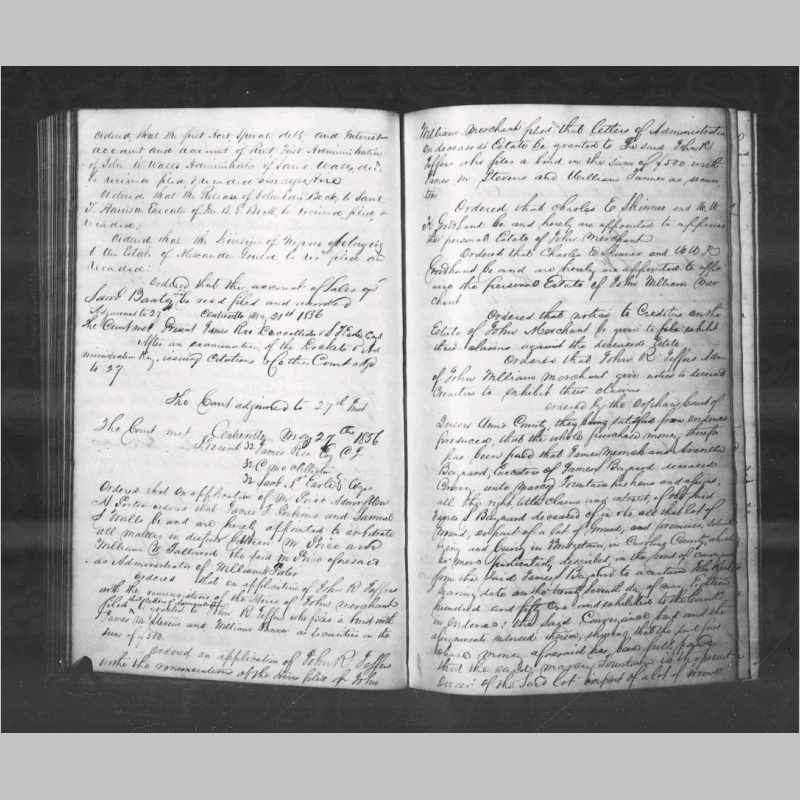 Ordered, that the first Acct, Sperate debts and Interest
account and account of Rent, first Administration
of John W. Walls Administrator of Saml Walls, decd
be received filed, & recorded
Ordered that the Release of John Edw Beck, to Saml
T. Harrison Executor of Beck be received filed &
recorded.
Ordered that the Division of Negroes belonging
to the Estate of Alexander be filed and
recorded.
Ordered that the account of Sales of
Saml Baxter be read filed and recorded
Adjourned to 27 Centreville May 21st 1856
The Court met Present James Roe & S. Earle Esqs
After an examination of the Dockets & Ad
ministration issuing Citations &c the Court adjd
to 27
The Court adjourned to 27th Inst
The Court met Centreville May 27th 1856
Present James Roe Esq C J
Saml T Earle Esqs
Ordered that on application of Wm Price Admr of Wm
H Porter ordered that James T. and Samuel
J Walls be and are hereby appointed to arbitrate
all matters in dispute between Wm Price and
William W the said Wm Price aforesaid
as Administrator of William Porter
Ordered that on application of John R Jeffers
with the renunciations of the Heirs of John Merchant
filed be granted to John R. Jeffers who files a bond with
James M Stevens and William Tanner as securities in the
sum of $500.
Ordered on application of John R Jeffers
with the renunciations of the heirs filed of John
William Merchant filed that letters of Administration
on deceaseds Estate be granted to the said John R
Jeffers who files a bond in the sum of $500 with
James M Stevens and William Tanner as securi
ties
Ordered that Charles E. Skinner and W. W.
R Goodhand be and hereby are appointed to appraise
the personal Estate of John Merchant
Ordered that Charles E Skinner and W W R
Goodhand be and are hereby are appointed to appra
ise the personal Estate of John William Mer
chant
Ordered that notice to Creditors on the
Estate of John Merchant be given to exhibit
their claims against the deceaseds Estate
Ordered that John R. Jeffers Admr
of John William Merchant give notice to deceaseds
Creditors to exhibit their claims
Ordered by the Orphans Court of
Queen Anns County, they being satisfied from evidence
produced, that the whole purchase money therefor
has been paid that James Merrick and
Baynard, Executors of James Baynard deceased
Convey unto Marcy Fountain his heirs and assigns,
all the right, title claim and interest, of the said
James Baynard deceased of in &c. all that lot of
Ground, or part of a lot of Ground, and premises, situate
lying and being in Bridgetown, in Caroline County, which
is more particularly described in the bond of conveyance
from the said James Baynard to a certain John
bearing date on the day of Eighteen
hundred and fifty one and exhibited to the Court
endorsed: the said Conveyance and the
assignments endorsed thereon, shewing that the
chase money aforesaid has been fully paid &
that the said Marcy Fountain is the present
owner of the said lot or part of a lot of Ground